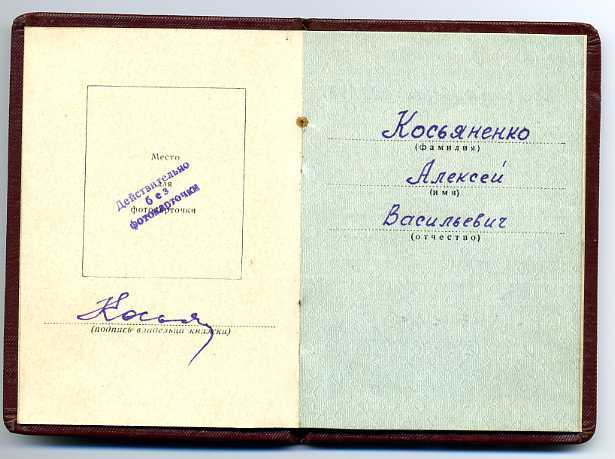 Место
для
фотокарточки
Действительно
без
фотокарточки
Кось
(подпись владельца книжки)
Косьяненко
(фамилия)
Алексей
(имя)
Васильевич
(отчество)